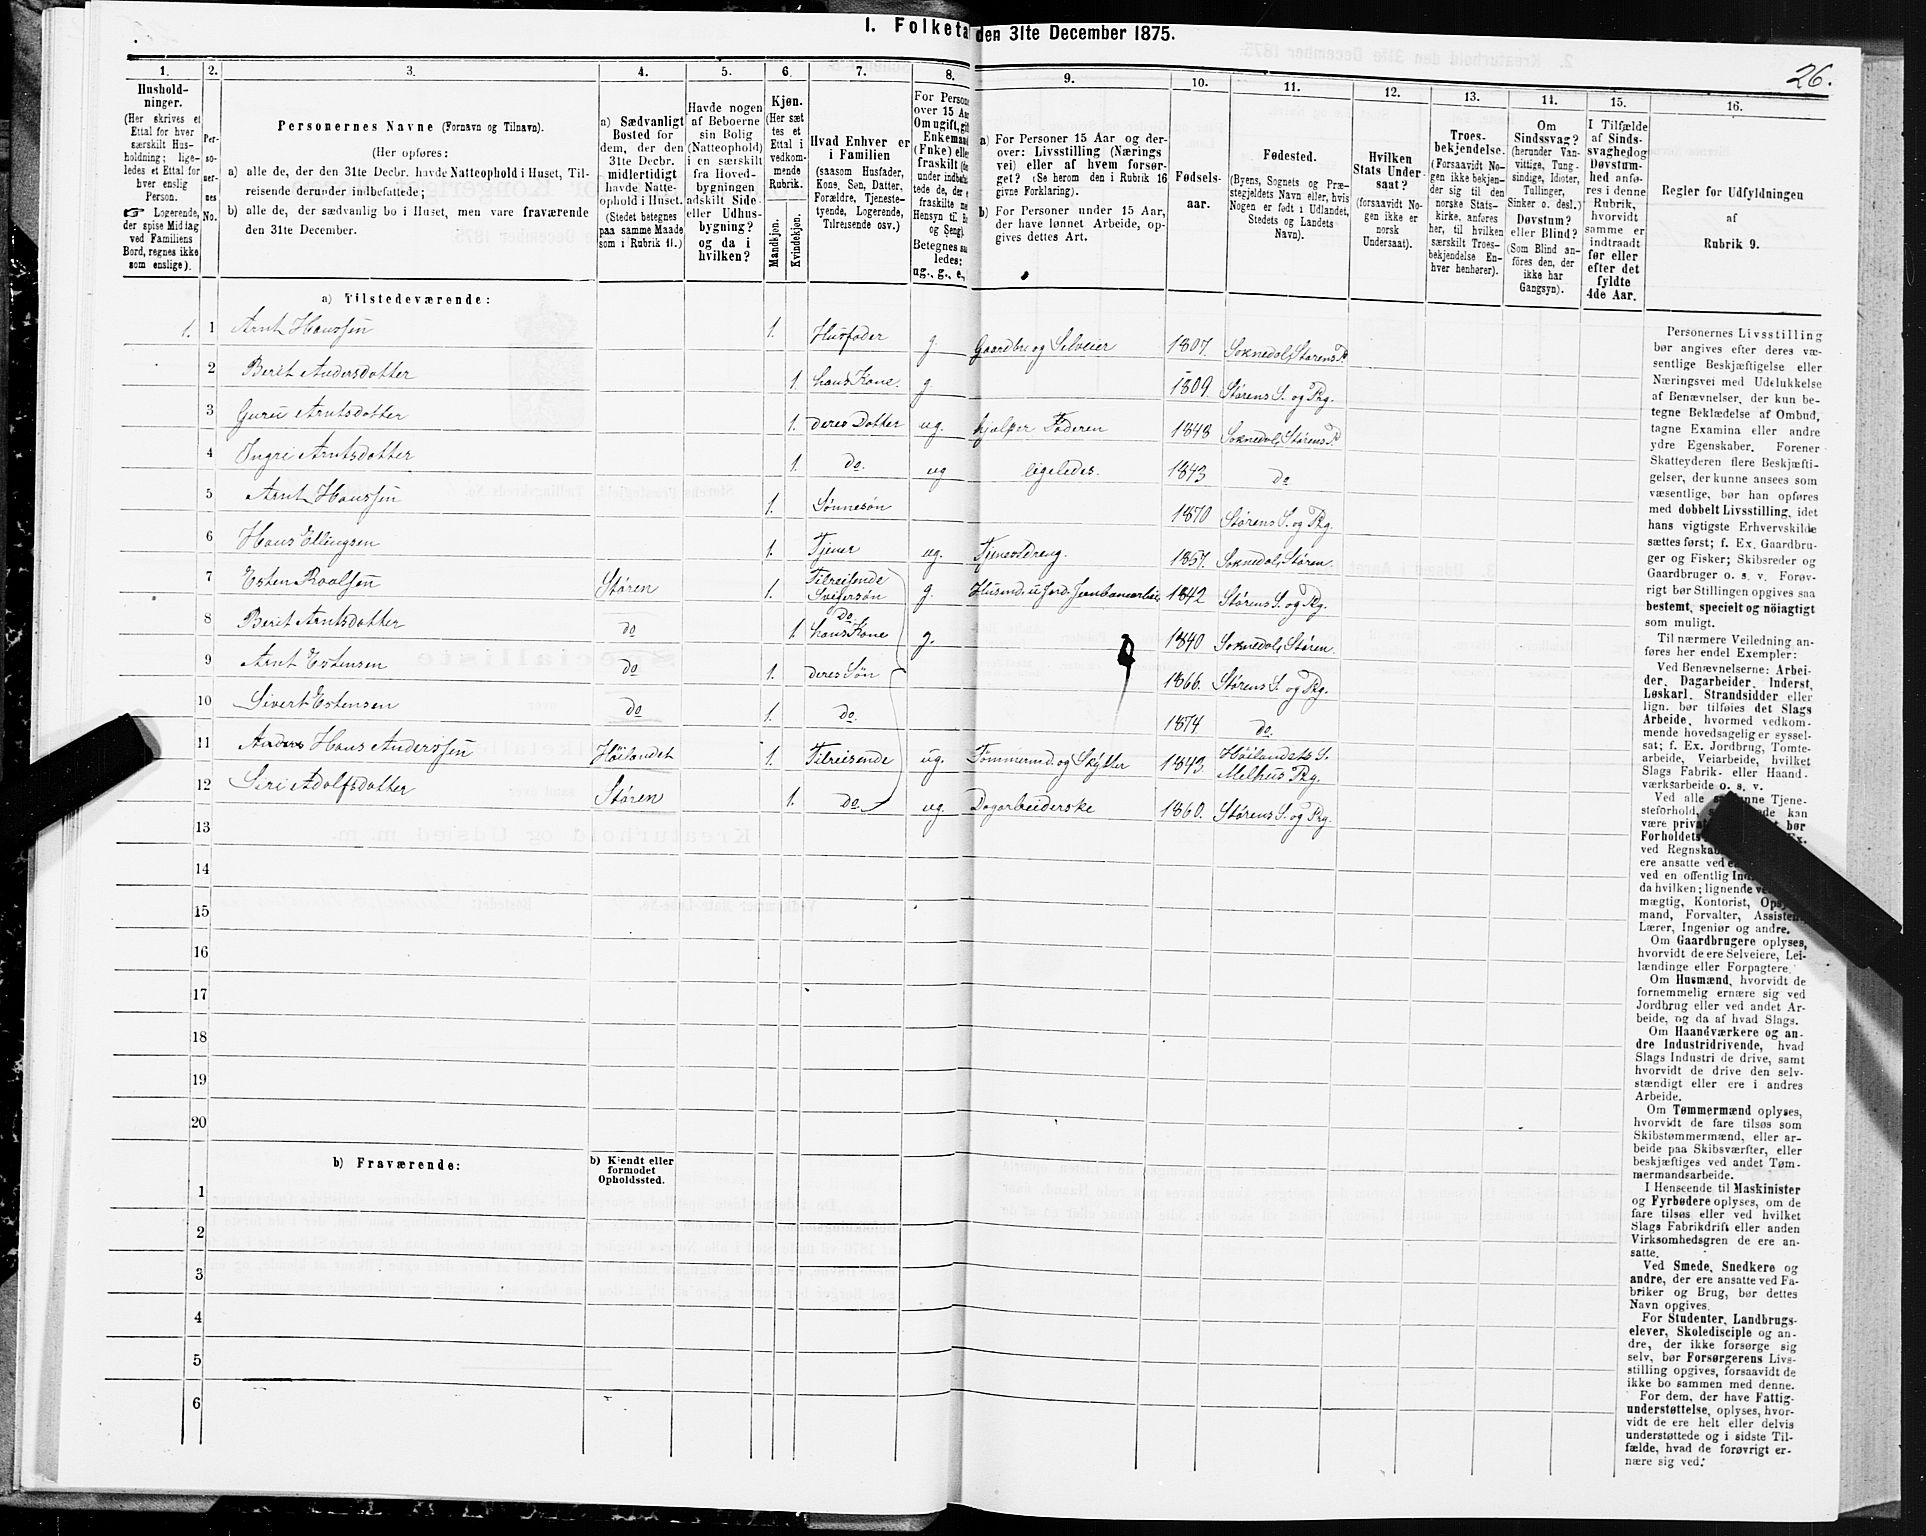 I. Folketal den 31te December 1875.
26.
1. 2. 3. 4. 5. 6. 7. 8. 9. 10. 11. 12. 13. 14. 15. 16.
Hushold-
ninger.
(Her skrives et
Ettal for hver
særskilt Hus-
holdning; lige-
ledes et Ettal for
hver enslig
Person.
☞ Logerende,
der spise Middag
ved Familiens
Bord, regnes ikke
som enslige).
Per-
so-
ner-
nes
No.
Personernes Navne (Fornavn og Tilnavn).
(Her opføres:
a) alle de, der den 31te Decbr. havde Natteophold i Huset, Til-
reisende derunder indbefattede;
b) alle de, der sædvanlig bo i Huset, men vare fraværende
den 31te December.
a) Sædvanligt
Bosted for
dem, der den
31te Decbr.
midlertidigt
havde Natte-
ophold i Huset.
(Stedet betegnes
paa samme Maade
som i Rubrik 11.)
Havde nogen
af Beboerne
sin Bolig
(Natteophold)
i en særskilt
fra Hoved-
bygningen
adskilt Side-
eller Udhus-
bygning?
og da i
hvilken?
Kjøn.
(Her sæt-
tes et
Ettal i
vedkom-
mende
Rubrik.
Mandkjøn.
Kvindekjøn.
Hvad Enhver er
i Familien
(saasom Husfader,
Kone, Søn, Datter,
Forældre, Tjeneste-
tyende, Logerende,
Tilreisende osv.)
For Persone
over 15 Aar
Om ugift, gift
Enkemand
(Fnke) eller
fraskilt
under indbefat-
tede de, der e
fraskilte
Hensyn til
og Seng).
Betegnes saa
ledes:
ug., g., e.,
a) For Personer 15 Aar og der-
over: Livsstilling (Nærings
vei) eller af hvem forsør-
get? (Se herom den i Rubrik 16
givne Forklaring).
b) For Personer under 15 Aar,
der have lønnet Arbeide, op-
gives dettes Art.
Fødsels-
aar.
Fødested.
(Byens, Sognets og Præ-
stegjeldets Navn eller, hvis
Nogen er født i Udlandet,
Stedets og Landets
Navn).
Hvilken
Stats Under-
saat?
(forsaavidt No-
gen ikke er
norsk
Undersaat).
Troes-
bekjendelse.
(Forsaavidt No-
gen ikke bekjen-
der sig til den
norske Stats-
kirke, anføres
her, til hvilken
særskilt Troes-
bekjendelse En-
hver henhører).
Om
Sindssvag?
(herunder Van-
vittige, Tung-
sindige, Idioter,
Tullinger,
Sinker o. desl.)
Døvstum?
eller Blind?
(Som Blind an-
føres den, der
ikke har
Gangsyn).
I Tilfælde
af Sinds-
svaghedog
Døvstum-
hed anfø-
res i denne
Rubrik,
hvorvidt
samme er
indtraadt
før eller
efter det
fyldte
4de Aar.
Regler for Udfyldningen
af
Rubrik 9.
a) Tilstedeværende:
1. 1 Arnt Hanssen 1. Husfader g. Gaardbr og Selveier 1807. Soknedal, Størens P
2 Berit Andersdotter 1. hans Kone. g 1809. Størens S. og Prg.
3 Guru Arntsdotter 1. deres Dotter ug. hjælper Faderen 1848 Soknedal, Størens P
4 Ingri Arntsdotter 1. do. ug ligeledes. 1843 do
5 Arnt Hanssen 1. Sønnesøn 1870 Størens S. og Prg.
6 Hans Ellingsen 1. Tjener ug. Tjenestdreng. 1857. Soknedal, Støren.
7 Esten Roalsen Støren 1. Tilreisende Svigersøn g. Husmd. u Jord. Jernbanearbeid 1842 Størens S. og Prg.
8 Berit Arntsdotter do 1. Do hans Kone g. 1840 Soknedal, Støren.
9 Arnt Estensen do 1. deres Søn 1866. Størens S. og Prg.
10 Sivert Estensen do 1. do. 1874 do.
11 Anders Hans Anderssen Höilandet 1. Tilreisende ug. Tømmermd. og Skytter 1843. Höilandets S. Melhus Prg.
12 Siri Adolfsdotter Støren 1. do. ug Dagarbeiderske 1860. Størens S. og Prg.
13
14
15
16
17
18
19
20
b) Fraværende:
b) Kjendt eller
formodet
Opholdssted.
1
2
3
4
5
6
Personernes Livsstilling
bør angives efter deres væ-
sentlige Beskjæftigelse eller
Næringsvei med Udelukkelse
af Benævnelser, der kun be-
tegne Beklædelse af Ombud,
tagne Examina eller andre
ydre Egenskaber. Forener
Skatteyderen flere Beskjæfti-
gelser, der kunne ansees som
væsentlige, bør han opføres
med dobbelt Livsstilling, idet
hans vigtigste Erhvervskilde
sættes først; f. Ex. Gaardbru-
ger og Fisker; Skibsreder og
Gaardbruger o. s. v. Forøv-
rigt bør Stillingen opgives saa
bestemt, specielt og nöiagtigt
som muligt.
Til nærmere Veiledning an-
føres her endel Exempler:
Ved Benævnelserne: Arbei-
der, Dagarbeider, Inderst,
Løskarl, Strandsidder eller
lign. bør tilføies det Slags
Arbeide, hvormed vedkom-
mende hovedsagelig er syssel-
sat; f. Ex. Jordbrug, Tomte-
arbeide, Veiarbeide, hvilket
Slags Fabrik- eller Haand-
værksarbeide o. s. v.
Ved alle Tjene-
steforhold, kan
være bør
Forholdets Ex.
ved Regnskab
ere ansatte ved
ved en offentlig
da hvilken; lignende
mægtig, Kontorist,
mand, Forvalter, Assistent,
Lærer, Ingeniør og andre.
Om Gaardbrugere oplyses,
hvorvidt de ere Selveiere, Lei-
lændinge eller Forpagtere.
Om Husmænd, hvorvidt de
fornemmelig ernære sig ved
Jordbrug eller ved andet Ar-
beide, og da af hvad Slags.
Om Haandværkere og an-
dre Industridrivende, hvad
Slags Industri de drive, samt
hvorvidt de drive den selv-
stændigt eller ere i andres
Arbeide.
Om Tømmermænd oplyses,
hvorvidt de fare tilsøs som
Skibstømmermænd, eller ar-
beide paa Skibsværfter, eller
beskjæftiges ved andet Tøm-
mermandsarbeide.
I Henseende til Maskinister
og Fyrbødere oplyses, om de
fare tilsøs eller ved hvilket
Slags Fabrikdrift eller anden
Virksomhedsgren de ere an-
satte.
Ved Smede, Snedkere og
andre, der ere ansatte ved Fa-
briker og Brug, bør dettes
Navn opgives.
For Studenter, Landbrugs-
elever, Skoledisciple og an-
dre, der ikke forsørge sig
selv, bør Forsørgerens Livs-
stilling opgives, forsaavidt de
ikke bo sammen med denne.
For dem, der have Fattig-
understøttelse, oplyses, hvor-
vidt de ere helt eller delvis
understøttede og i sidste Til-
fælde, hvad de forøvrigt er-
nære sig ved.